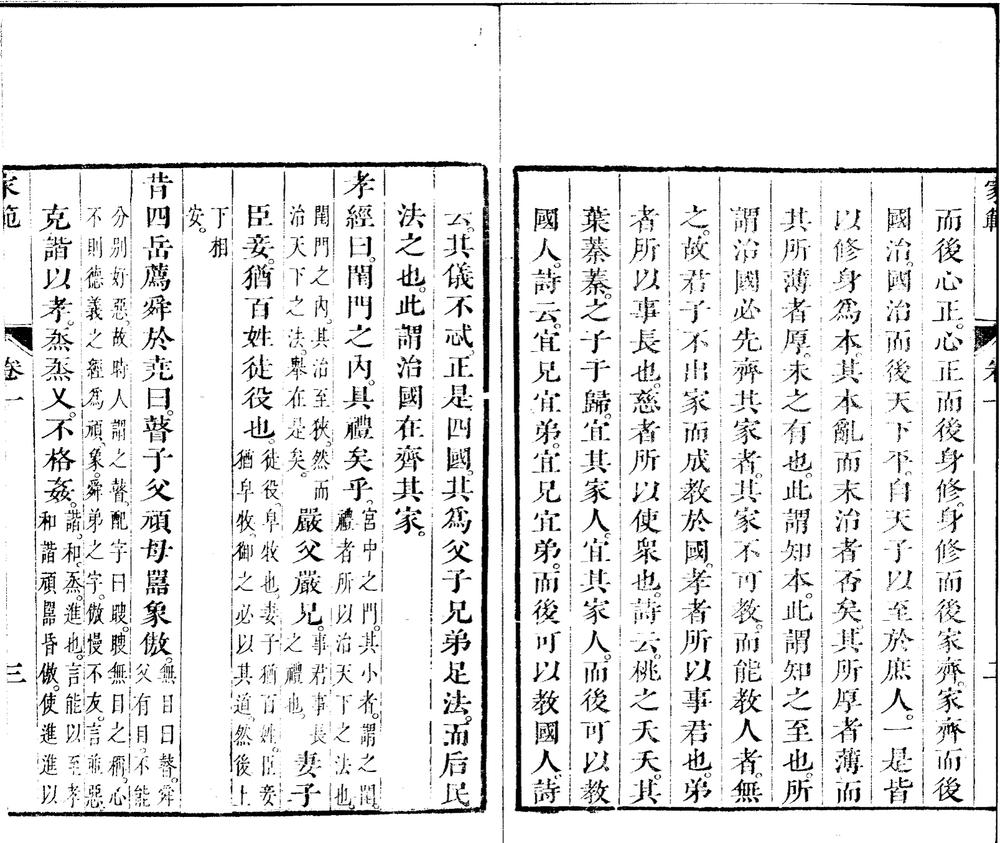 家範
卷一
二
而後心正。心正而後身修。身修而後家齊。家齊而後
國治。國治而後天下平。自天子以至於庶人。一是皆
以修身爲本。其本亂而末治者否矣。其所厚者薄而
其所薄者厚。未之有也。此謂知本。此謂知之至也。所
謂治國必先齊其家者。其家不可教。而能教人者。無
之。故君子不出家而成教於國。孝者所以事君也。弟
者所以事長也。慈者所以使衆也。詩云。桃之夭夭。其
葉蓁蓁。之子于歸。宜其家人。宜其家人。而後可以教
國人。詩云。宜兄宜弟。宜兄宜弟。而後可以教國人。詩
云。其儀不忒。正是四國。其爲父子兄弟足法。而后民
法之也。此謂治國在齊其家。
孝經曰。閨門之內。具禮矣乎。宮中之門。其小者。謂之閨。禮者所以治天下之法也。
閨門之內。其治至狹。然而治天下之法。舉在是矣。嚴父嚴兄。事君事長之禮也。妻子
臣妾。猶百姓徒役也。徒役。皁牧也。妻子猶百姓。臣妾猶皁牧。御之必以其道。然後上
下相安。
昔四岳薦舜於堯曰。瞽子父頑母嚚象傲。無目曰瞽。舜父有目。不能
分别好惡。故時人謂之瞽。配字曰瞍。瞍無目之稱。心不則德義之經爲頑。象。舜弟之字。傲慢不友。言並惡。
克諧以孝。烝烝乂。不格姦。諧。和。烝。進也。言能以至孝和諧頑嚚昏傲。使進進以
家範
卷一
三